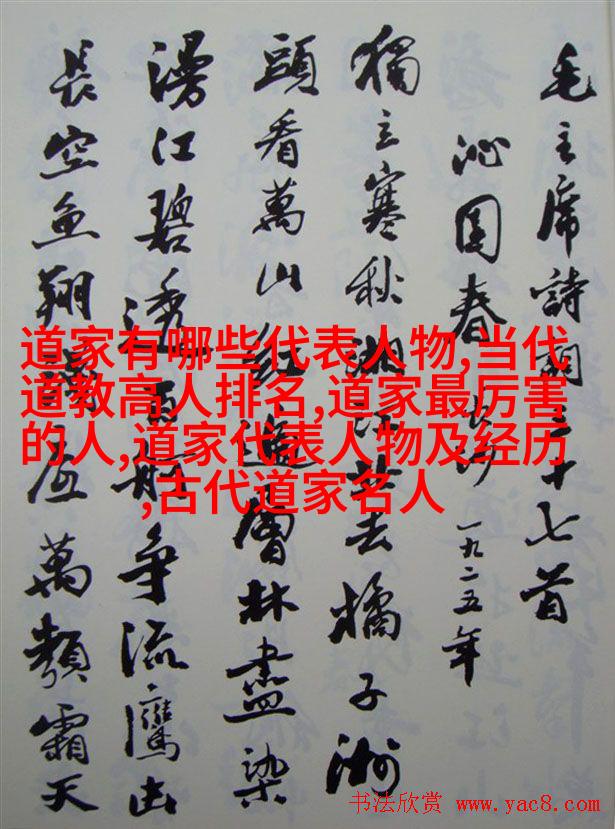 毛主席詩詞三十七首
沁園春 長沙 一九二五年
獨立寒秋湘江北去橘子洲
頭看萬山紅遍層林盡染
漫江碧透百舸争流鷹击
長空魚翔淺底萬類霜天
道家有哪些代表人物,当代
道教高人排名,道家最厉害
的人,道家代表人物及经历
,古代道家名人
书法欣赏 www.yac8.com